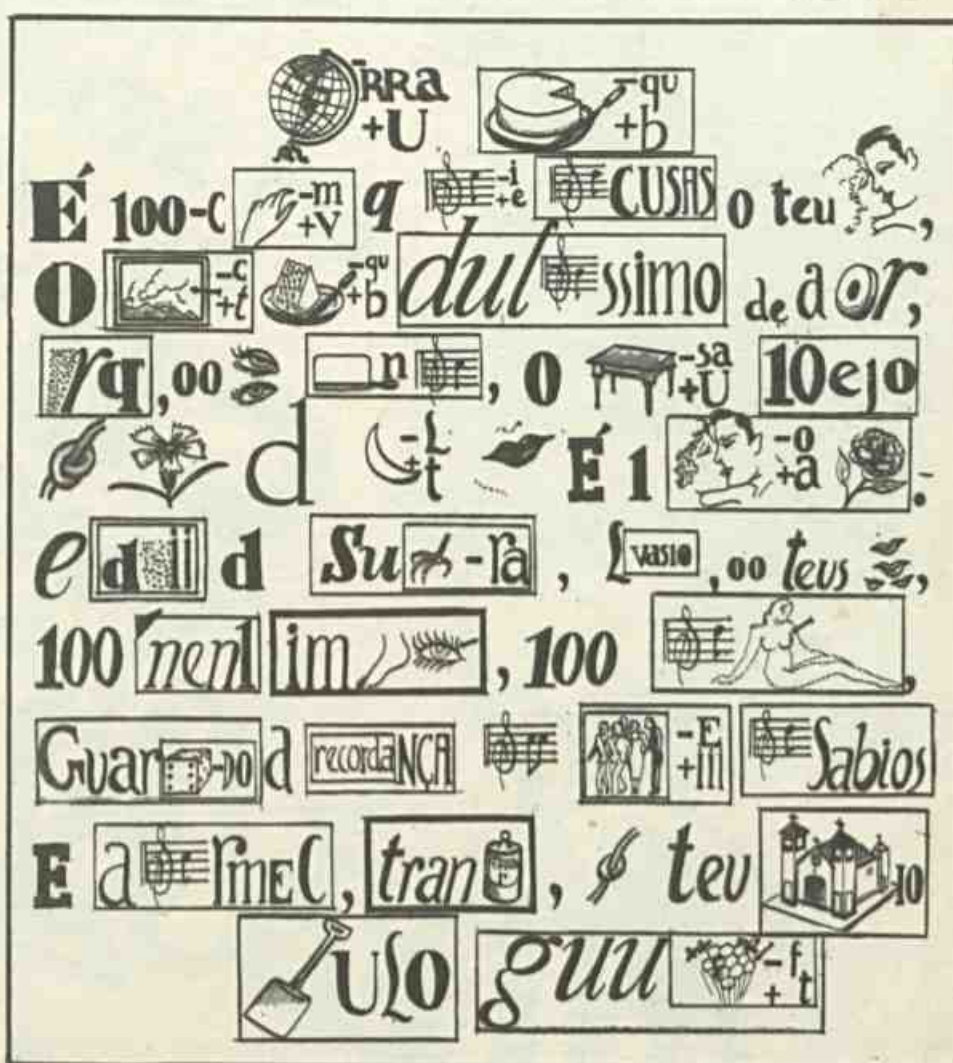 -RRa +U -qu +b
É 100-C -m +V q -i +e CUSAS O teu ,
O -c +t -qu +b dul ssimo de a or,
rq, oo n , O -sa +U 10ejo
d -L +t É 1 -o +a .
e d ii d Su -ra , L vasio , oo teus ,
100 nenl im , 100 ,
Guar -DO d recordaNÇA -E +m Sabios
E a rmeC, tran , teu IO
ULO guu -f +t